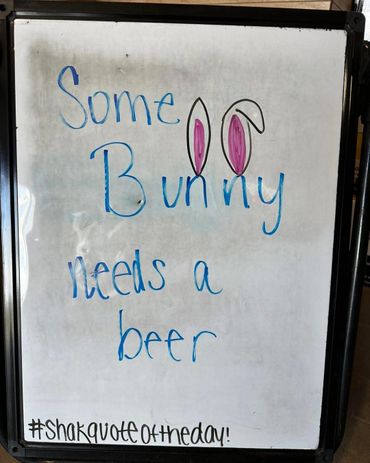 Some
Bunny
needs a
beer
#shakquoteoftheday!